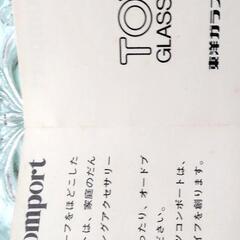 omport
ーフをほどこした
トは、家庭のだん
ングアクセサリー
ったり、オードブ
ださい。
ンコンポートは、
イフを創ります。
TO
GLASS
東洋ガラ